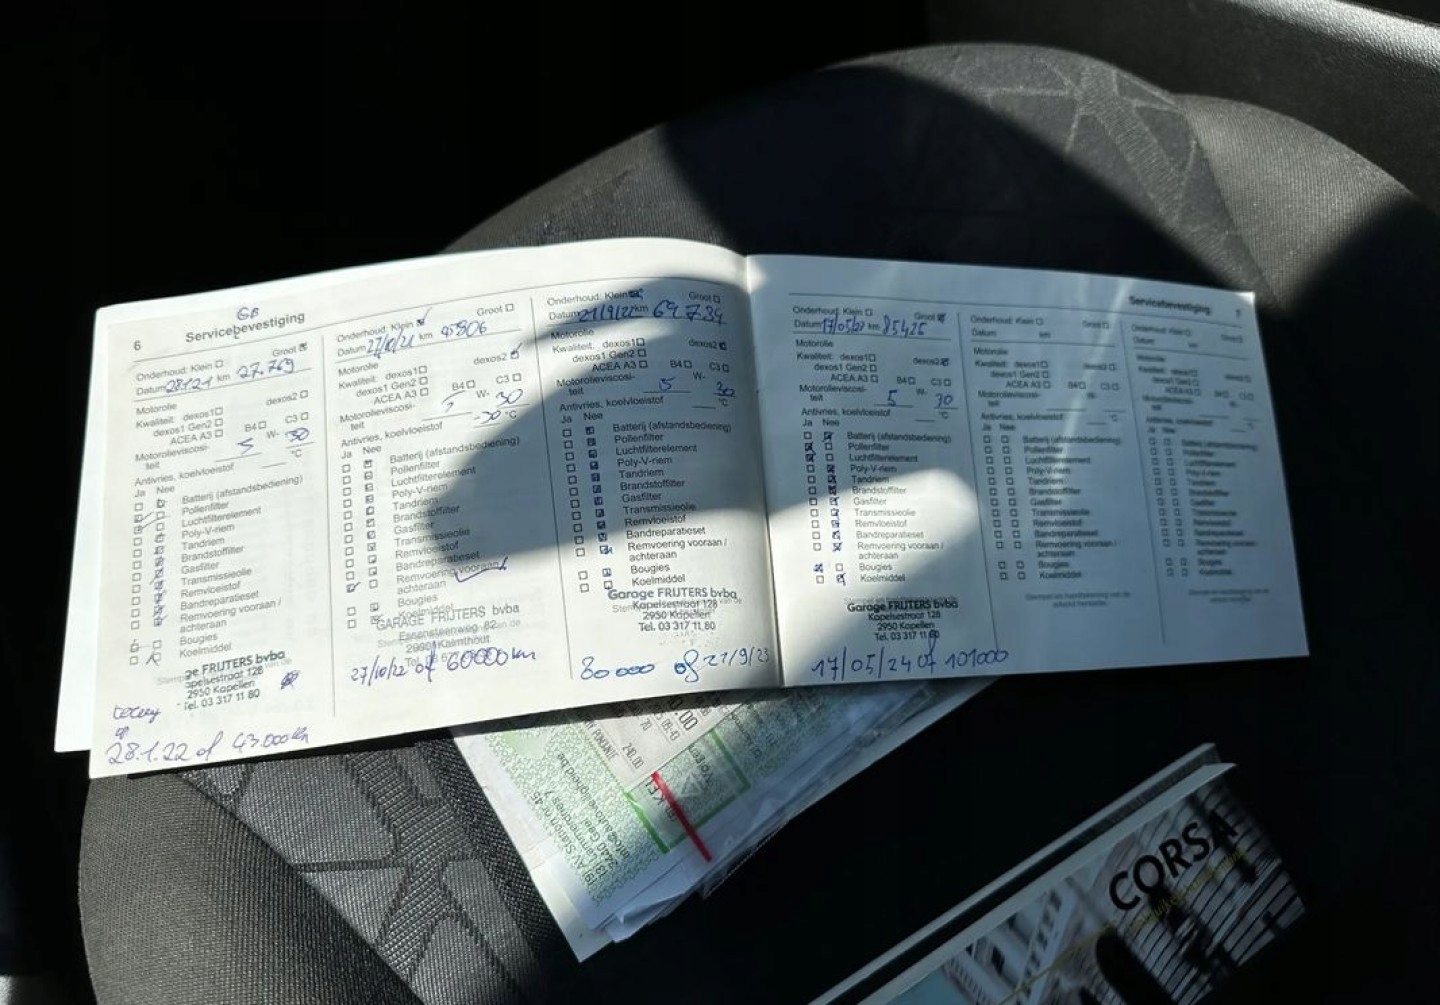 6
Servicebevestiging
Onderhoud: Klein ☐ Groot ☒
Datum 28121 km 27.769
Motorolie
Kwaliteit: dexos1 ☐ dexos2 ☐
dexos1 Gen2 ☐
ACEA A3 ☐ B4 ☐ C3 ☐
Motorolieviscosi-
teit 5 W- 30
Antivries, koelvloeistof °C
Ja Nee
Batterij (afstandsbediening)
Pollenfilter
Luchtfilterelement
Poly-V-riem
Tandriem
Brandstoffilter
Gasfilter
Transmissieolie
Remvloeistof
Bandreparatieset
Remvoering vooraan /
achteraan
Bougies
Koelmiddel
ge FRIJTERS bvba
apelsestraat 128
2950 Kapellen
Tel. 03 317 11 80
28.1.22 of 43000km
Onderhoud: Klein ☒ Groot ☐
Datum 27/10/21 km
Motorolie
Kwaliteit: dexos1 ☐ dexos2 ☒
dexos1 Gen2 ☐
ACEA A3 ☐ B4 ☐ C3 ☐
Motorolieviscosi-
teit W- 30
Antivries, koelvloeistof -30 °C
Ja Nee
Batterij (afstandsbediening)
Pollenfilter
Luchtfilterelement
Poly-V-riem
Tandriem
Brandstoffilter
Gasfilter
Transmissieolie
Remvloeistof
Bandreparatieset
Remvoering vooraan /
achteraan
Bougies
Koelmiddel
GARAGE FRIJTERS bvba
27/10/22 of 60000km
Onderhoud: Klein ☒ Groot ☐
Datum 21/9/22 km 69734
Motorolie
Kwaliteit: dexos1 ☐ dexos2 ☒
dexos1 Gen2 ☐
ACEA A3 ☐ B4 ☐ C3 ☐
Motorolieviscosi-
teit 5 W- 30
Antivries, koelvloeistof °C
Ja Nee
Batterij (afstandsbediening)
Pollenfilter
Luchtfilterelement
Poly-V-riem
Tandriem
Brandstoffilter
Gasfilter
Transmissieolie
Remvloeistof
Bandreparatieset
Remvoering vooraan /
achteraan
Bougies
Koelmiddel
Garage FRIJTERS bvba
Kapelsestraat 128
2950 Kapellen
Tel. 03 317 11 80
80000 of 21/9/23
Servicebevestiging 7
Onderhoud: Klein ☐ Groot ☒
Datum 17/05/23 km 85425
Motorolie
Kwaliteit: dexos1 ☐ dexos2 ☒
dexos1 Gen2 ☐
ACEA A3 ☐ B4 ☐ C3 ☐
Motorolieviscosi-
teit 5 W- 30
Antivries, koelvloeistof °C
Ja Nee
Batterij (afstandsbediening)
Pollenfilter
Luchtfilterelement
Poly-V-riem
Tandriem
Brandstoffilter
Gasfilter
Transmissieolie
Remvloeistof
Bandreparatieset
Remvoering vooraan /
achteraan
Bougies
Koelmiddel
Garage FRIJTERS bvba
Kapelsestraat 128
2950 Kapellen
Tel. 03 317 11 80
17/05/24 of 101000
Onderhoud: Klein ☐ Groot ☐
Datum km
Motorolie
Kwaliteit: dexos1 ☐ dexos2 ☐
dexos1 Gen2 ☐
ACEA A3 ☐ B4 ☐ C3 ☐
Motorolieviscosi-
teit W-
Antivries, koelvloeistof °C
Ja Nee
Batterij (afstandsbediening)
Pollenfilter
Luchtfilterelement
Poly-V-riem
Tandriem
Brandstoffilter
Gasfilter
Transmissieolie
Remvloeistof
Bandreparatieset
Remvoering vooraan /
achteraan
Bougies
Koelmiddel
Onderhoud: Klein ☐ Groot ☐
Datum km
Motorolie
Kwaliteit: dexos1 ☐ dexos2 ☐
dexos1 Gen2 ☐
ACEA A3 ☐ B4 ☐ C3 ☐
Motorolieviscosi-
teit W-
Antivries, koelvloeistof °C
Ja Nee
Batterij (afstandsbediening)
Pollenfilter
Luchtfilterelement
Poly-V-riem
Tandriem
Brandstoffilter
Gasfilter
Transmissieolie
Remvloeistof
Bandreparatieset
Remvoering vooraan /
achteraan
Bougies
Koelmiddel
240.00
CORSA